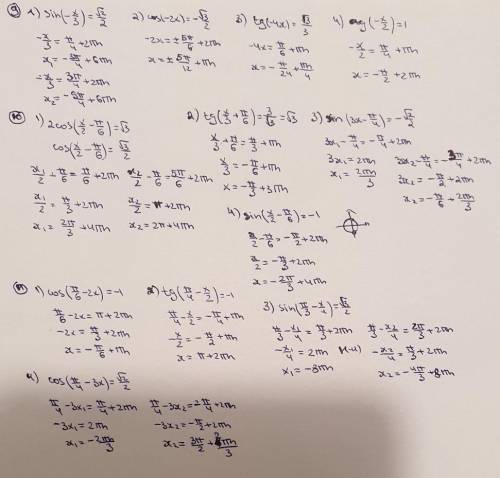 9) 1) sin(-x/3)=√2/2
-x/3=π/4+2πn
x₁=-3π/4+6πn
-x/3=3π/4+2πn
x₂=-9π/4+6πn
2) cos(-2x)=-√3/2
-2x=±5π/6+2πn
x=±5π/12+πn
3) tg(-4x)=√3/3
-4x=π/6+πn
x=-π/24+πn/4
4) ctg(-x/2)=1
-x/2=π/4+πn
x=-π/2+2πn
10) 1) 2cos(x/2-π/6)=√3
cos(x/2-π/6)=√3/2
x₁/2-π/6=π/6+2πn
x₁/2=π/3+2πn
x₁=2π/3+4πn
x₂/2-π/6=5π/6+2πn
x₂/2=π+2πn
x₂=2π+4πn
2) tg(x/3+π/6)=3/√3=√3
x/3+π/6=π/3+πn
x/3=-π/6+πn
x=-π/3+3πn
3) sin(3x-π/4)=-√2/2
3x₁-π/4=-π/4+2πn
3x₁=2πn
x₁=2πn/3
3x₂-π/4=-3π/4+2πn
3x₂=-π/2+2πn
x₂=-π/6+2πn/3
4) sin(x/2-π/6)=-1
x/2-π/6=-π/2+2πn
x/2=-π/3+2πn
x=-2π/3+4πn
11) 1) cos(π/6-2x)=-1
π/6-2x=π+2πn
-2x=π/3+2πn
x=-π/6+πn
2) tg(π/4-x/2)=-1
π/4-x/2=-π/4+πn
-x/2=-π/2+πn
x=π+2πn
3) sin(π/3-x/4)=√3/2
π/3-x₁/4=π/3+2πn
-x₁/4=2πn
x₁=-8πn
π/3-x₂/4=2π/3+2πn
-x₂/4=π/3+2πn
x₂=-4π/3+8πn
4) cos(π/4-3x)=√2/2
π/4-3x₁=π/4+2πn
-3x₁=2πn
x₁=-2πn/3
-3x₂=-π/2+2πn